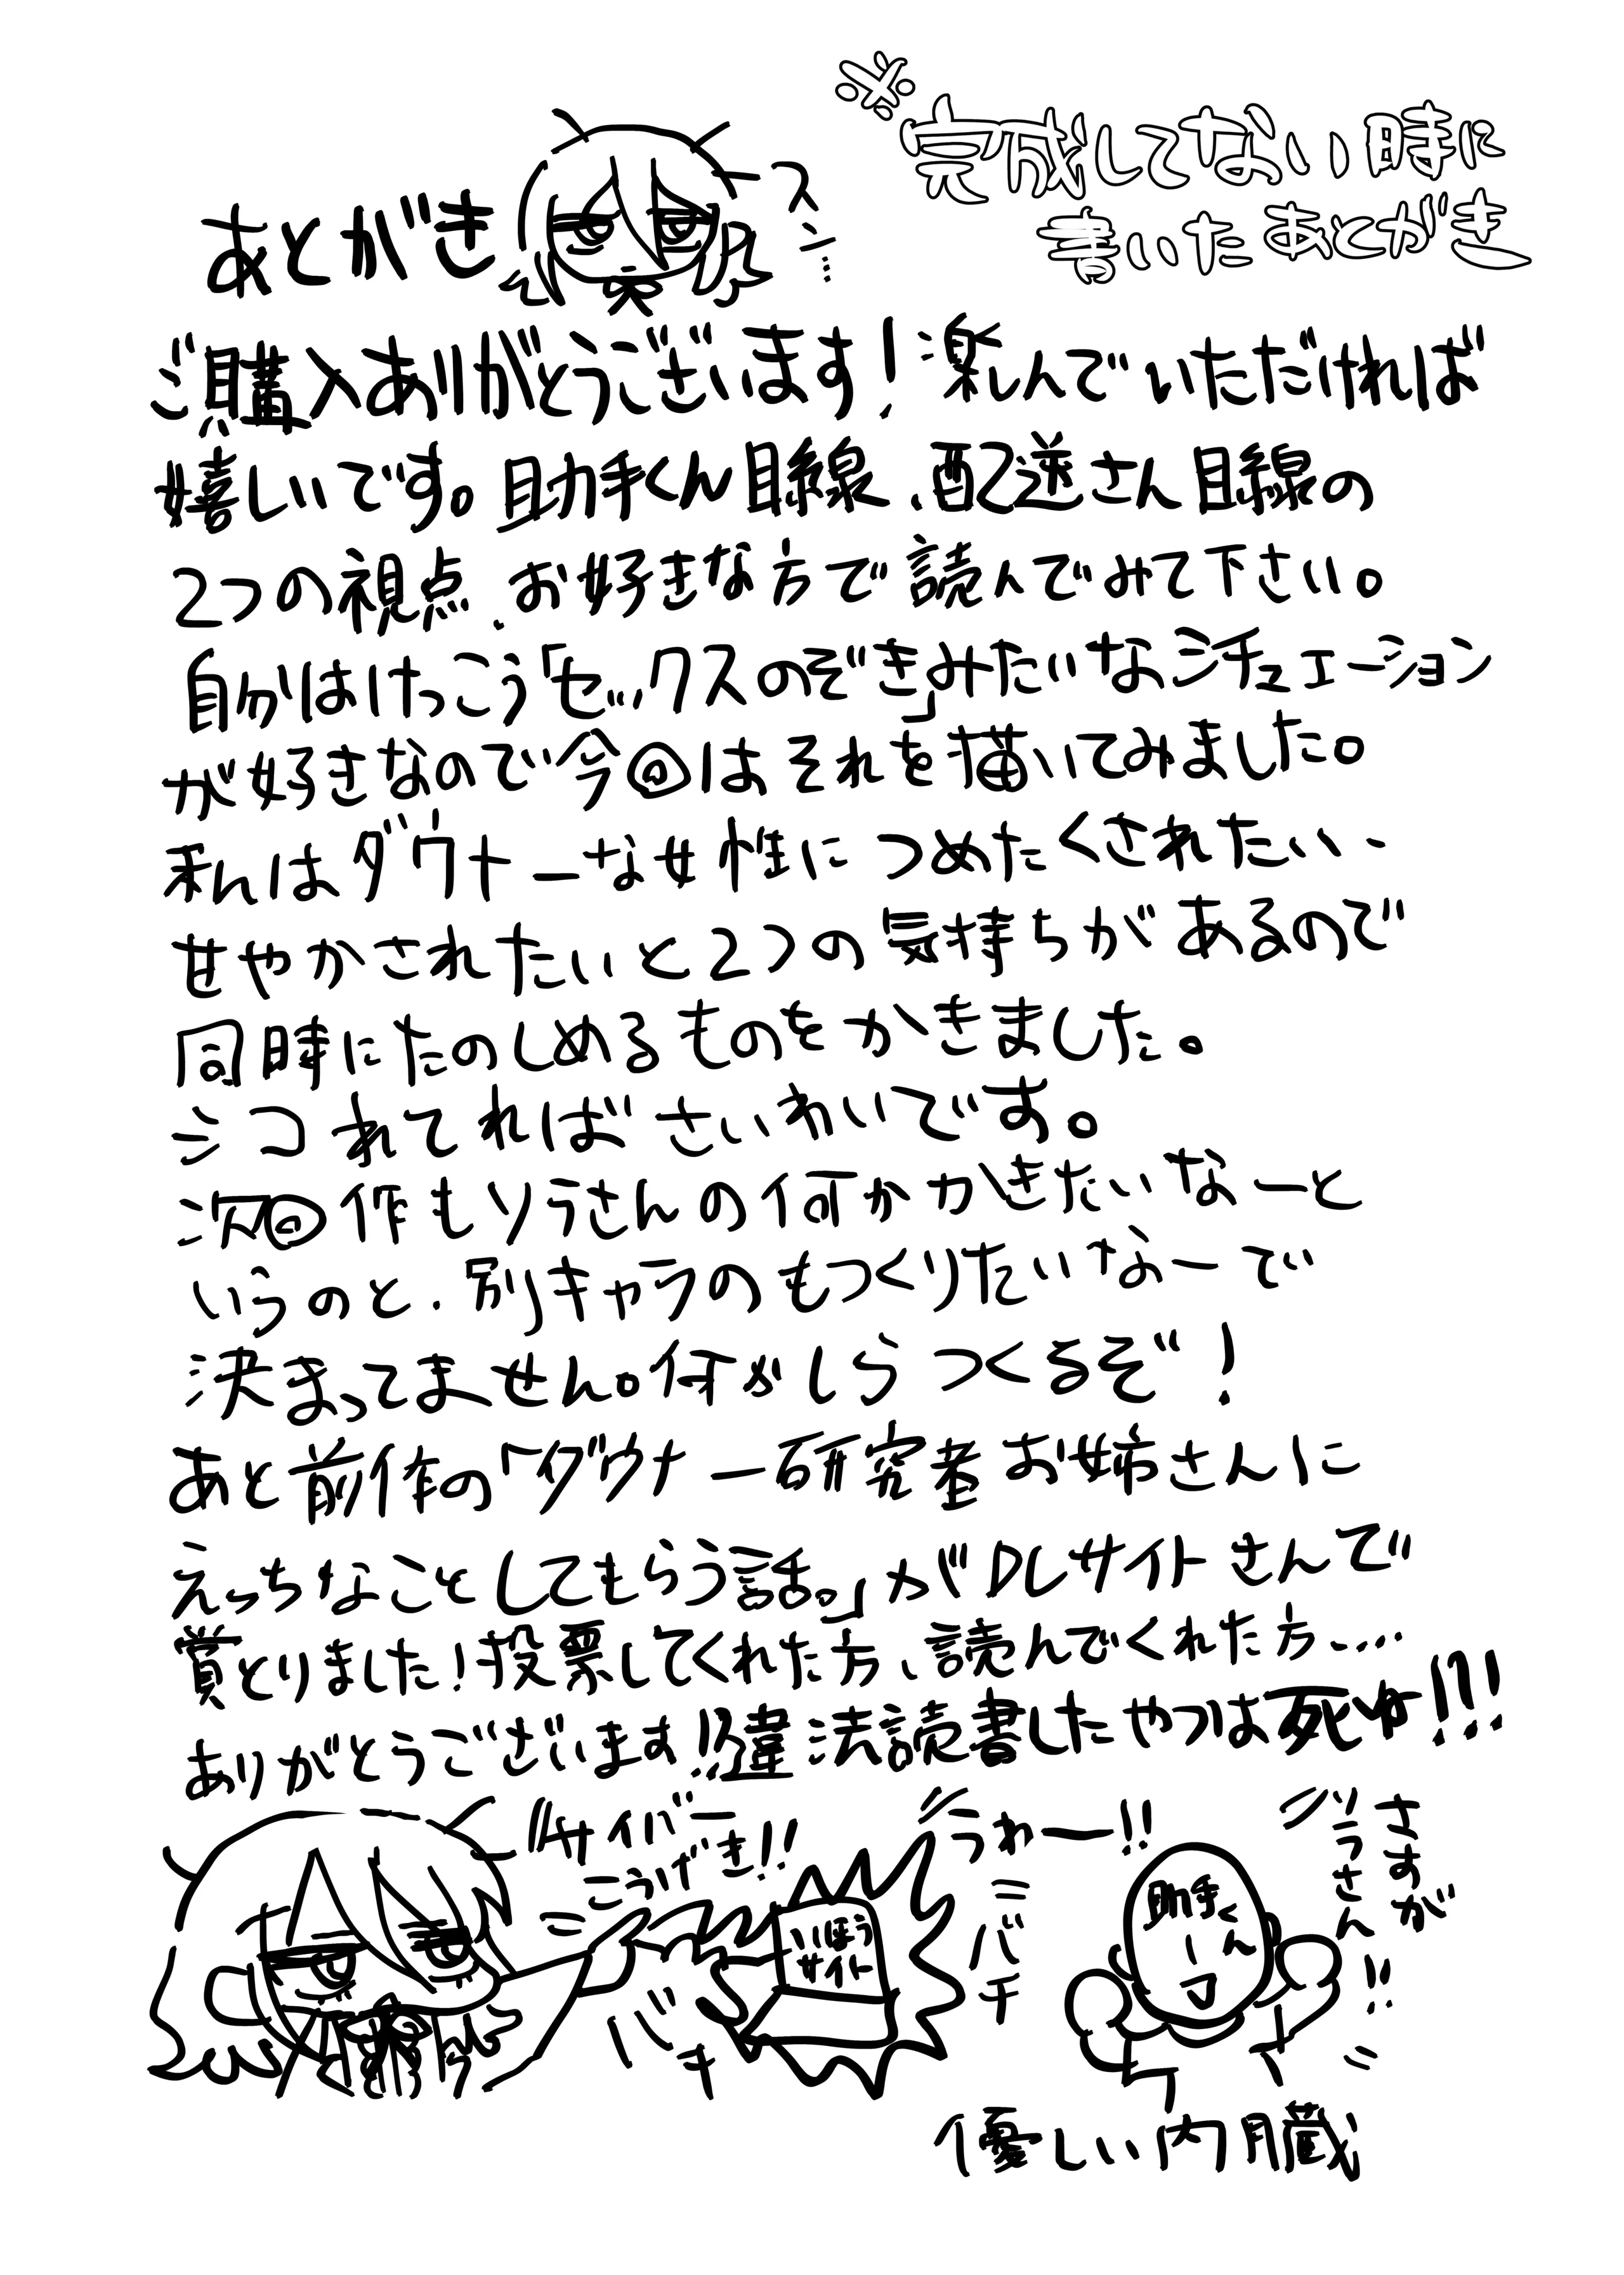 ※完成してない時に
書いたあとがき
あとがき
スン…
ご購入ありがとうございます！楽しんでいただければ
嬉しいです。助手くん目線、配送さん目線の
2つの視点、お好きな方で読んでみて下さい。
自分はけっこう「セックスのぞき」みたいなシチュエーション
が好きなので今回はそれを描いてみました。
私はダウナーな女性につめたくされたい、
甘やかされたいと2つの気持ちがあるので
同時にたのしめるものをかきました。
シコれてればさいわいです。
次回作もリうさんの何かかきたいなーと
いうのと、別キャラのもつくりたいなーで
決まってません。何かしらつくるぞ！
あと前作の「ダウナー研究者お姉さんに
えっちなことしてもらう話。」がDLサイトさんで
賞とりました！投票してくれた方、読んでくれた方…
ありがとうございます!!違法読書したやつは死ゆ!!!
サイバー
こうげき!!
いほう
サイト
バキ
うわー!!
バチ
助手くん
さすが
リうさん!!
優しい内臓